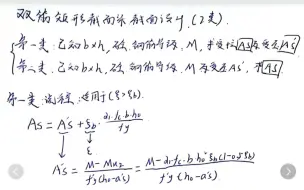 双筋矩形截面梁截面设计.(2类).
第一类:已知b×h,砼,钢筋等级,M,求受拉As及受压As'
第二类:已知b×h,砼,钢筋等级,M及受压As',求As.
第一类:流程:适用于(ξ>ξb).
As = As' + ξb · α₁·fc·b·h₀ / fy
ξ
As' = M-Mu₂ / fy'(h₀-as') = M-α₁·fc·b·h₀²·ξb(1-0.5ξb) / fy'(h₀-as')